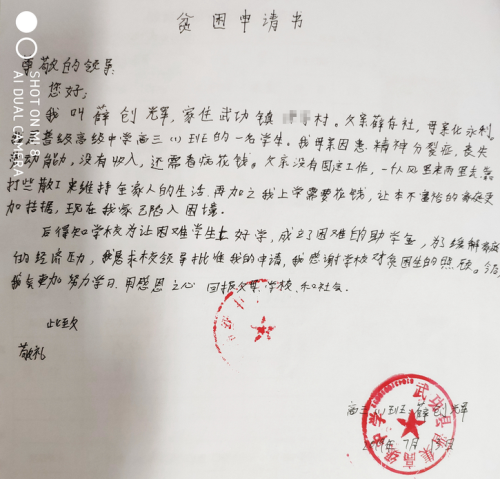 贫困申请书
尊敬的领导:
您好;
我叫薛创辉,家住武功镇 村。父亲薛存社,母亲
普级高级中学高三(1)班的一名学生。我母亲因患精神分裂症,丧失
劳动能力,没有收入,还需看病花钱。父亲没有固定工作,一个人风里来雨里去靠
打些散工来维持全家人的生活,再加之我上学需要花钱,让本不富裕的家庭更
加拮据,现在我家已陷入困境。
后得知学校为让困难学生上好学,成立了困难的助学金,为了缓解家庭
的经济压力,我恳求校领导批准我的申请,我感谢学校对贫困生的照顾。
我会更加努力学习,用感恩之心 回报父母、学校、和社会。
此致
敬礼
高三(1)班 薛创辉
年7月
武功县普集高级中学
SHOT ON MI 8
AI DUAL CAMERA